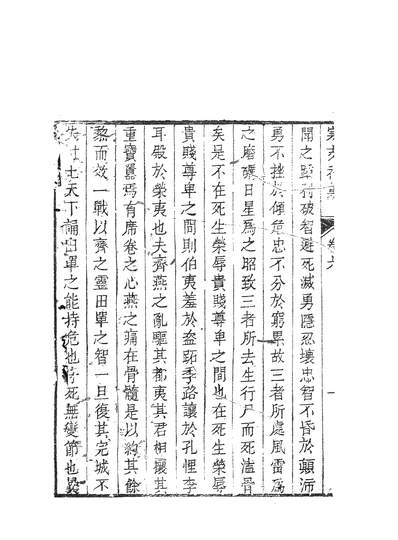 卷六
聞之蹈符破智避死滅勇隱忍壞忠智不昏於顛沛
勇不挫於傾危忠不分於窮累故三者所處風雷為
之磨礪日星為之昭致三者所去生行尸而死溘骨
矣是不在死生榮辱貴賤尊卑之間也在死生榮辱
貴賤尊卑之間則伯夷羞於盜跖季路讓於孔悝李
耳殿於榮夷也夫齊燕之亂驅其都夷其君相攘其
重寶囂焉有席卷之心燕之痛在骨髓是以約其餘
黎而效一戰以齊之靈田單之智一旦復其完城不
失 土天下誦田單之能持危也 死無變節也